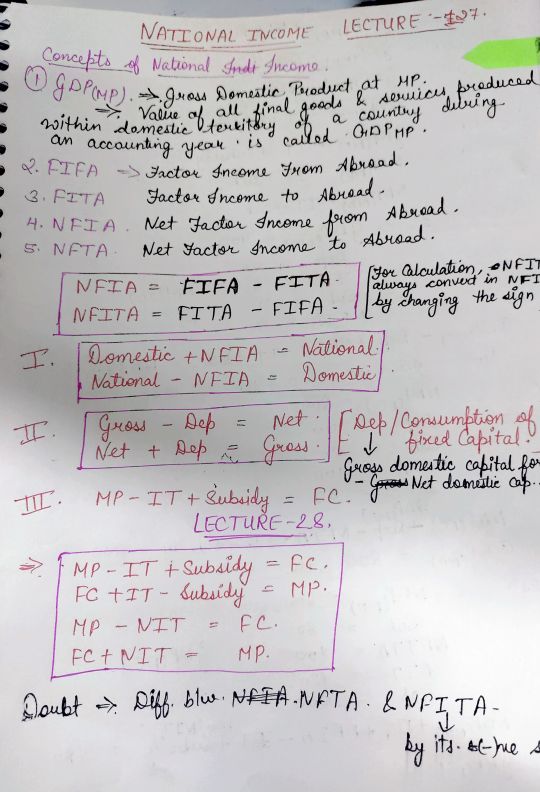 NATIONAL INCOME LECTURE :- 127.
Concepts of National Income.
① GDP(MP). ⇒ Gross Domestic Product at MP.
⇒ Value of all final goods & services produced
within domestic territory of a country during
an accounting year is called GDP MP.
2. FIFA → Factor Income From Abroad.
3. FITA Factor Income to Abroad.
4. NFIA. Net Factor Income from Abroad.
5. NFTA. Net Factor Income to Abroad.
NFIA = FIFA - FITA
NFITA = FITA - FIFA -
[For Calculation, NFIT
always convert in NFI
by changing the sign
I. Domestic + NFIA = National.
National - NFIA = Domestic
II. Gross - Dep = Net.
Net + Dep = Gross.
[Dep/Consumption of
fixed Capital.
↓
Gross domestic capital for
- Gross Net domestic cap..
III. MP - IT + Subsidy = FC.
LECTURE-28.
⇒ MP - IT + Subsidy = FC.
FC + IT - Subsidy = MP.
MP - NIT = FC.
FC + NIT = MP.
Doubt ⇒ Diff. b/w. NFIA. NFTA. & NFITA-
↓
by its. (-)ve s